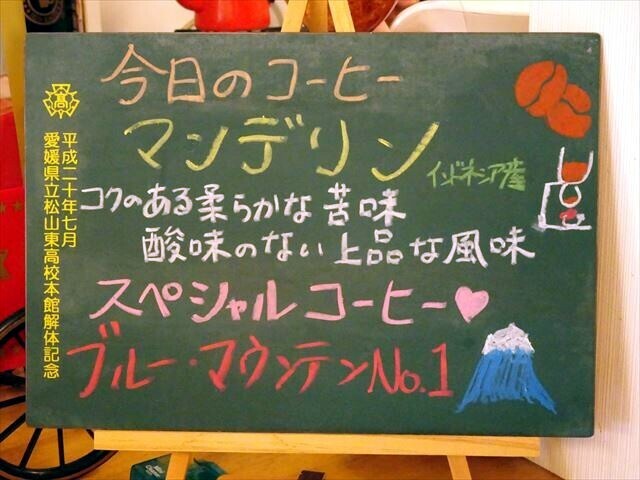 今日のコーヒー
マンデリン
インドネシア産
コクのある柔らかな苦味
酸味のない上品な風味
スペシャルコーヒー♥
ブルー・マウンテンNo.1
高
平成二十年七月
愛媛県立松山東高校本館解体記念